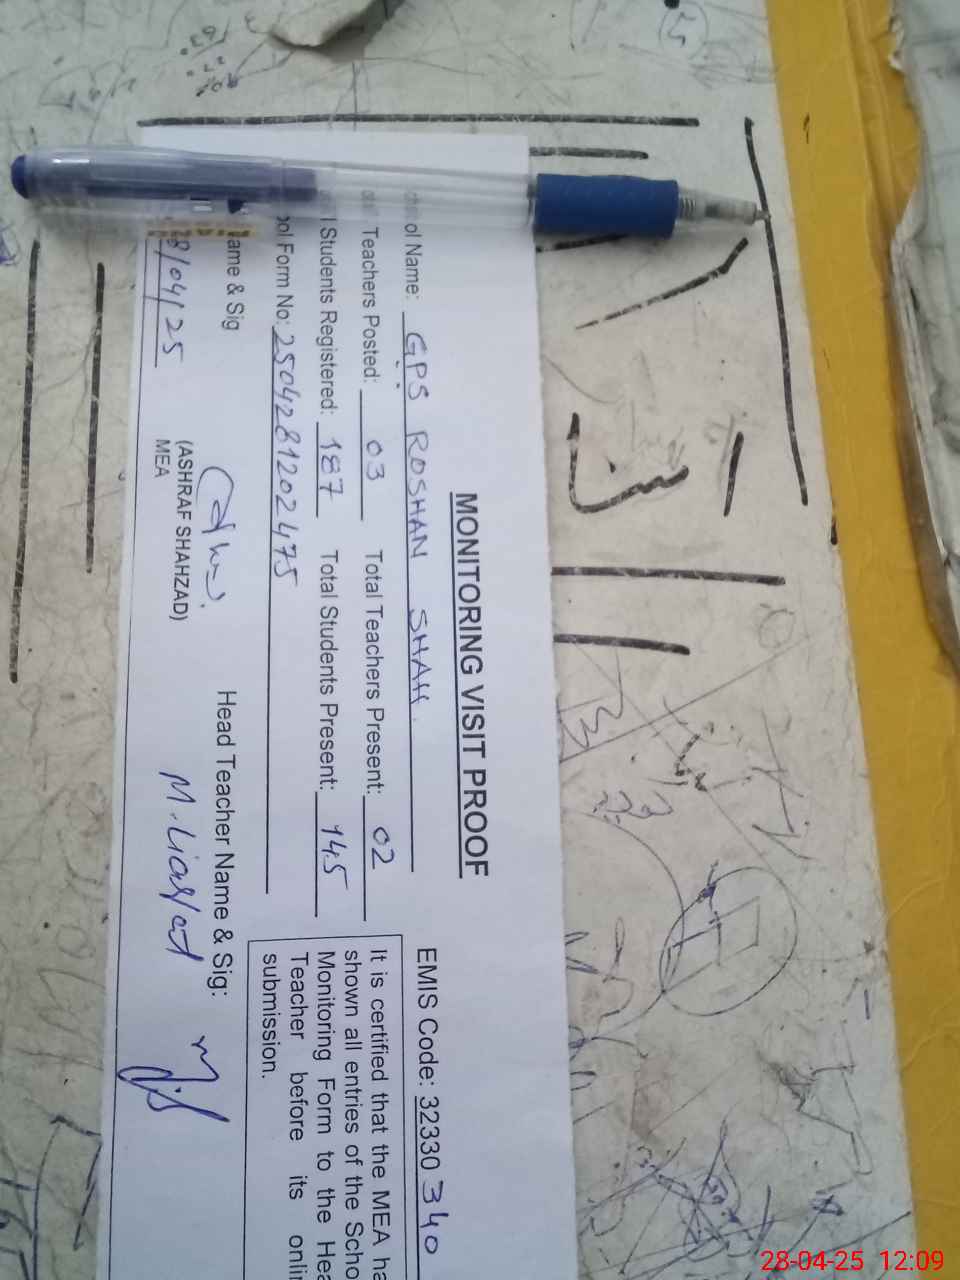 MONITORING VISIT PROOF
ol Name: GPS ROSHAN SHAH. EMIS Code: 32330340
Teachers Posted: 03 Total Teachers Present: 02
l Students Registered: 187 Total Students Present: 145
ool Form No: 250428120 2475
It is certified that the MEA ha
shown all entries of the Scho
Monitoring Form to the Hea
Teacher before its onlin
submission.
ame & Sig
(ASHRAF SHAHZAD)
MEA
Head Teacher Name & Sig:
M. Liaqat
8/04/25
28-04-25 12:09